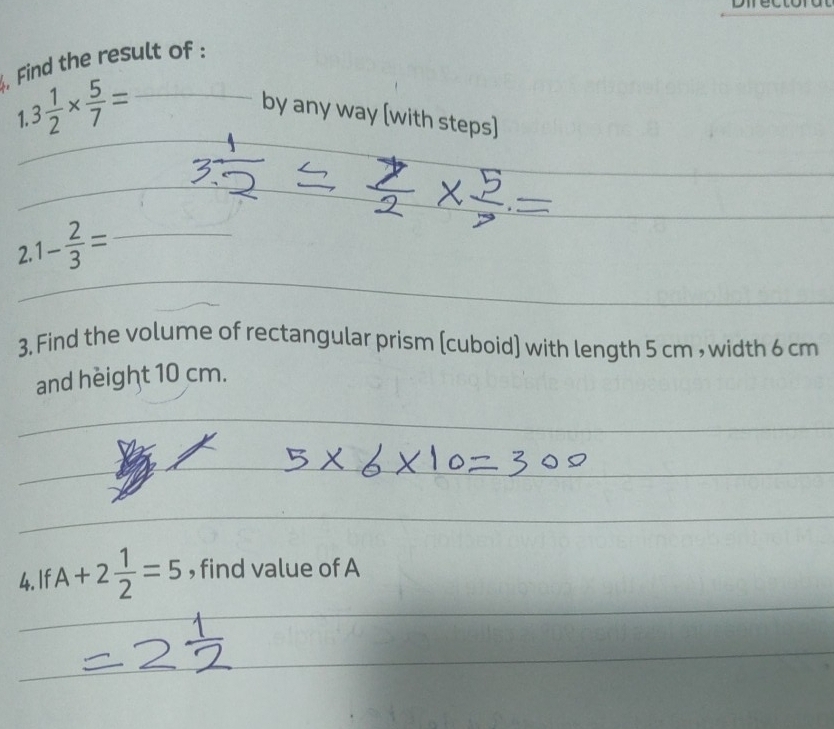 4. Find the result of :
1. 3 1/2 × 5/7 = ______ by any way (with steps)
3 1/2 = 7/2 × 5/7 =
2. 1 - 2/3 = ______
3. Find the volume of rectangular prism (cuboid) with length 5 cm, width 6 cm
and height 10 cm.
5 × 6 × 10 = 300
4. If A + 2 1/2 = 5, find value of A
= 2 1/2